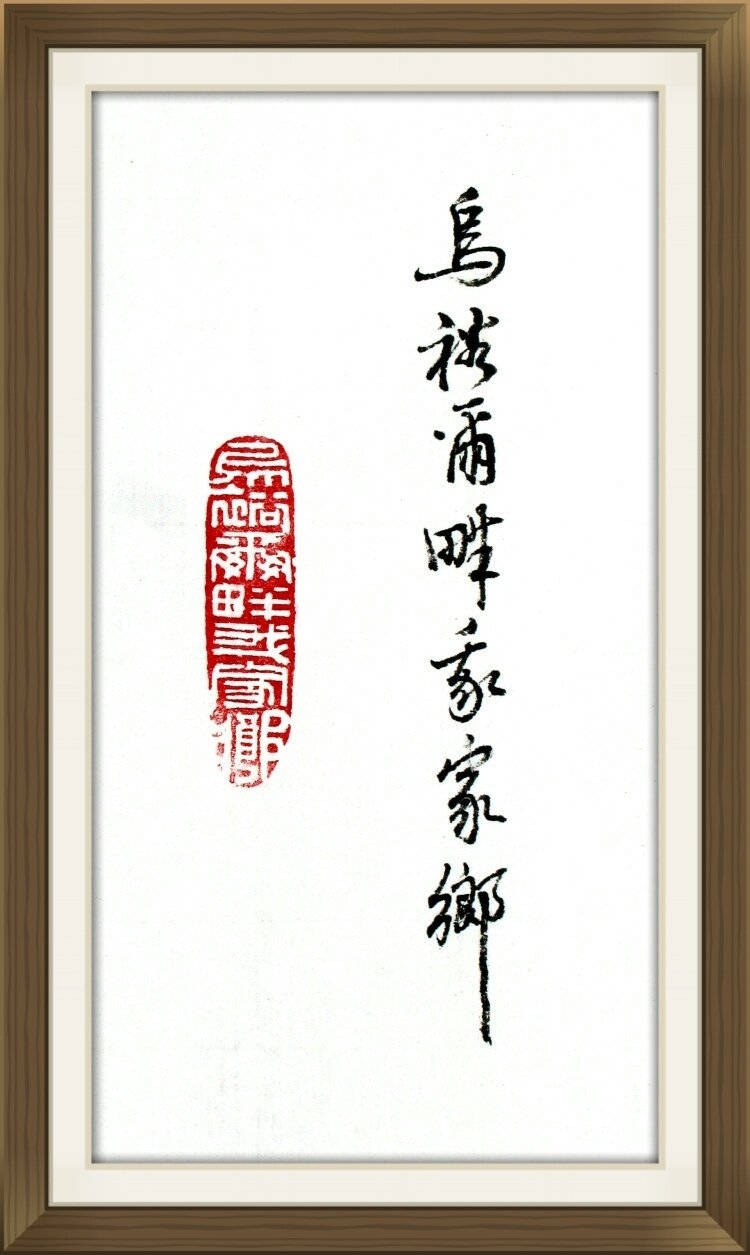 烏裕爾畔我家鄉
烏裕爾畔我家鄉